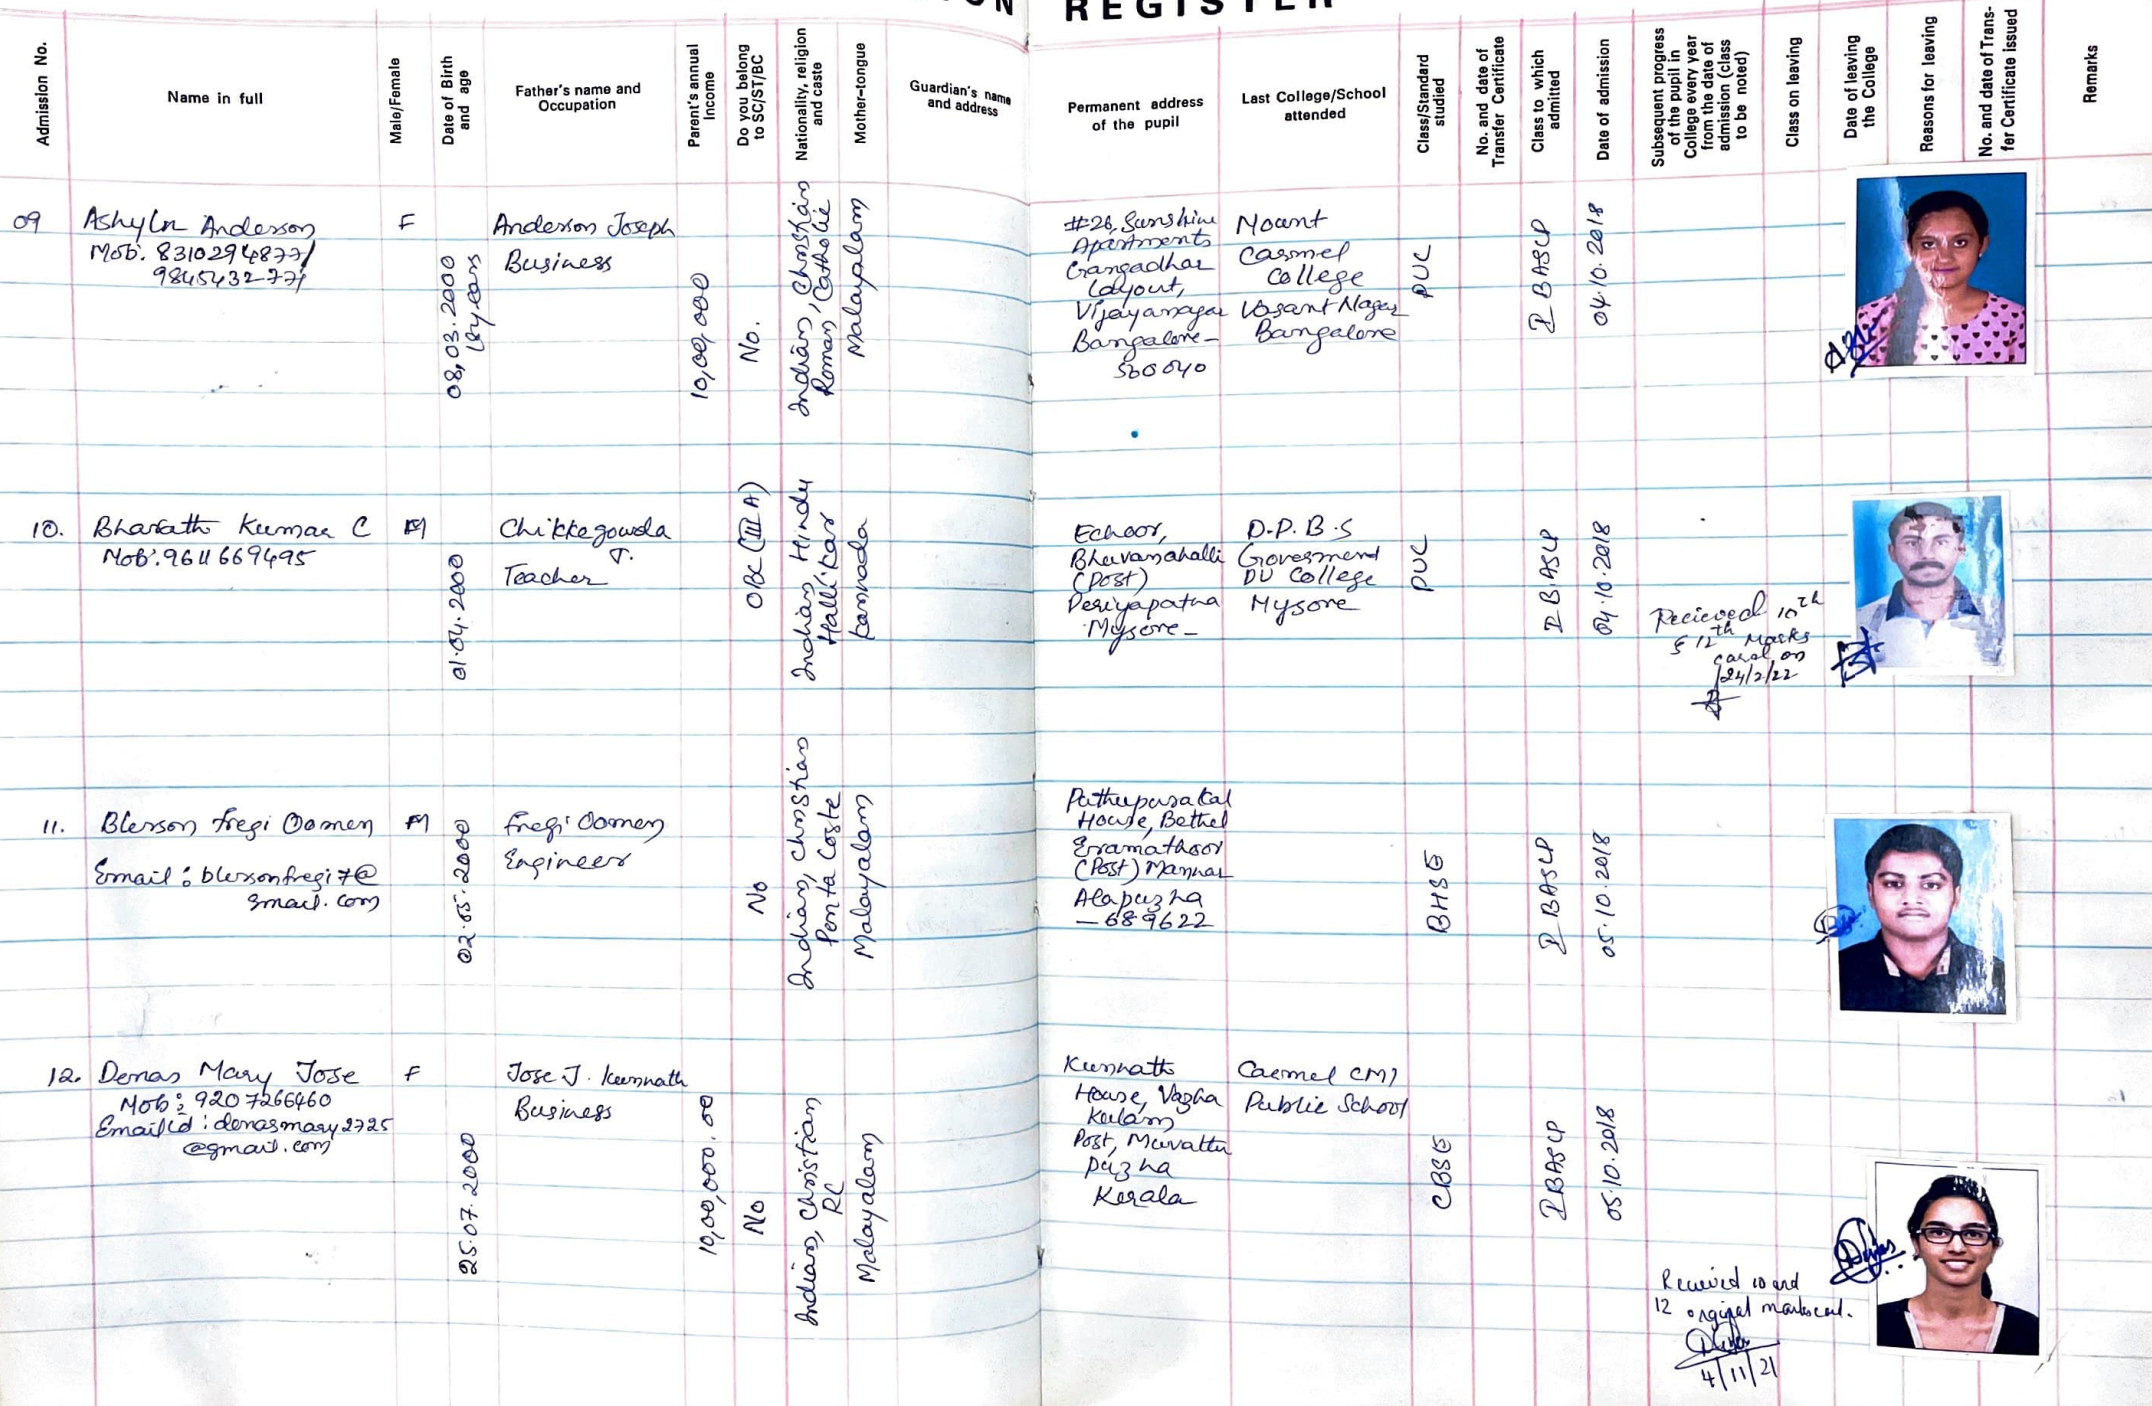 REGISTER
Admission No.
Name in full
Male/Female
Date of Birth
and age
Father's name and
Occupation
Parent's annual
Income
Do you belong
to SC/ST/BC
Nationality, religion
and caste
Mother-tongue
Guardian's name
and address
Permanent address
of the pupil
Last College/School
attended
Class/Standard
studied
No. and date of
Transfer Certificate
Class to which
admitted
Date of admission
Subsequent progress
of the pupil in
College every year
from the date of
admission (class
to be noted)
Class on leaving
Date of leaving
the College
Reasons for leaving
No. and date of Trans-
fer Certificate issued
Remarks
09
Ashyln Anderson
Mob: 8310294877/
F
08.03.2000
18years
Anderson Joseph
Business
10,00,000
No.
Indian, Christian
Roman, Catholic
Malayalam
#26, Sunshine
Apartments
Gangadhar
Layout,
Vijayanagar
Bangalore-
560040
Mount
Carmel
College
Vasant Nagar
Bangalore
PUC
I BASLP
04.10.2018
10.
Bharath Kumar C
Mob: 9611669495
M
01.04.2000
Chikkegowda
J.
Teacher
OBC (III A)
Indian, Hindu
Hallikar
Kannada
Echoor,
Bhuvanahalli
(Post)
Periyapatna
Mysore-
D.P.B.S
Government
DU College
Mysore
PUC
I BASLP
04.10.2018
Recieved 10th
& 12th Marks
card on
24/2/22
11.
Blesson Fregi Oomen
Email: blessonfregi7@
gmail.com
M
02.05.2000
Fregi Oomen
Engineer
No
Indian, Christian
Penta Coste
Malayalam
Puthuparakal
House, Bethel
Eramathoor
(Post) Mannar
Alapuzha
- 689622
BHSE
I BASLP
05.10.2018
12.
Denas Mary Jose
Mob: 9207266460
Email id: denasmary2725
@gmail.com
F
25.07.2000
Jose J. Kunnath
Business
10,00,000.00
No
Indian, Christian
RC
Malayalam
Kunnath
House, Vazha
Kulam
Post, Muvattu
puzha
Kerala
Carmel CMI
Public School
CBSE
I BASLP
05.10.2018
Received 10 and
12 orginal markscard.
4/11/21